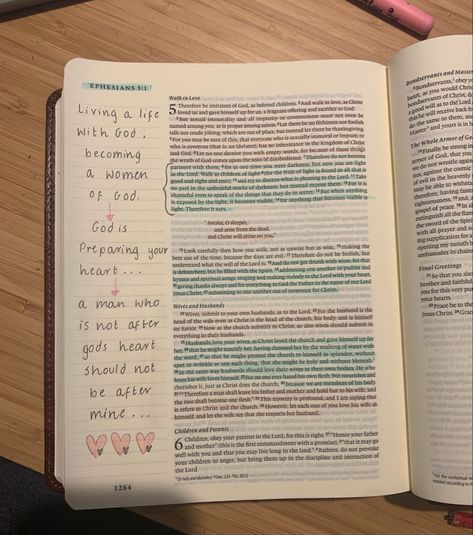 EPHESIANS 5:1
Living a life
with God,
becoming
a women
of God.
God is
Preparing your
heart...
a man who
is not after
gods heart
should not
be after
mine...
1264
Walk in Love
5 Therefore be imitators of God, as beloved children. ²And walk in love, as Christ
loved us and gave himself up for us, a fragrant offering and sacrifice to God.
³But sexual immorality and all impurity or covetousness must not even be
named among you, as is proper among saints. ⁴Let there be no filthiness nor foolish
talk nor crude joking, which are out of place, but instead let there be thanksgiving.
⁵For you may be sure of this, that everyone who is sexually immoral or impure, or
who is covetous (that is, an idolater), has no inheritance in the kingdom of Christ
and God. ⁶Let no one deceive you with empty words, for because of these things
the wrath of God comes upon the sons of disobedience. ⁷Therefore do not become
partners with them; ⁸for at one time you were darkness, but now you are light
in the Lord. Walk as children of light ⁹(for the fruit of light is found in all that is
good and right and true), ¹⁰and try to discern what is pleasing to the Lord. ¹¹Take
no part in the unfruitful works of darkness, but instead expose them. ¹²For it is
shameful even to speak of the things that they do in secret. ¹³But when anything
is exposed by the light, it becomes visible, ¹⁴for anything that becomes visible is
light. Therefore it says,
"Awake, O sleeper,
and arise from the dead,
and Christ will shine on you."
¹⁵Look carefully then how you walk, not as unwise but as wise, ¹⁶making the
best use of the time, because the days are evil. ¹⁷Therefore do not be foolish, but
understand what the will of the Lord is. ¹⁸And do not get drunk with wine, for that
is debauchery, but be filled with the Spirit, ¹⁹addressing one another in psalms and
hymns and spiritual songs, singing and making melody to the Lord with your heart,
²⁰giving thanks always and for everything to God the Father in the name of our Lord
Jesus Christ, ²¹submitting to one another out of reverence for Christ.
Wives and Husbands
²²Wives, submit to your own husbands, as to the Lord. ²³For the husband is the
head of the wife even as Christ is the head of the church, his body, and is himself
its Savior. ²⁴Now as the church submits to Christ, so also wives should submit in
everything to their husbands.
²⁵Husbands, love your wives, as Christ loved the church and gave himself up for
her, ²⁶that he might sanctify her, having cleansed her by the washing of water with
the word, ²⁷so that he might present the church to himself in splendor, without
spot or wrinkle or any such thing, that she might be holy and without blemish.
²⁸In the same way husbands should love their wives as their own bodies. He who
loves his wife loves himself. ²⁹For no one ever hated his own flesh, but nourishes and
cherishes it, just as Christ does the church, ³⁰because we are members of his body.
³¹"Therefore a man shall leave his father and mother and hold fast to his wife, and
the two shall become one flesh." ³²This mystery is profound, and I am saying that
it refers to Christ and the church. ³³However, let each one of you love his wife as
himself, and let the wife see that she respects her husband.
Children and Parents
6 Children, obey your parents in the Lord, for this is right. ²"Honor your father
and mother" (this is the first commandment with a promise), ³"that it may go
well with you and that you may live long in the land." ⁴Fathers, do not provoke
your children to anger, but bring them up in the discipline and instruction of
the Lord.
Bondservants and
The Whole Armor of
Final Greetings